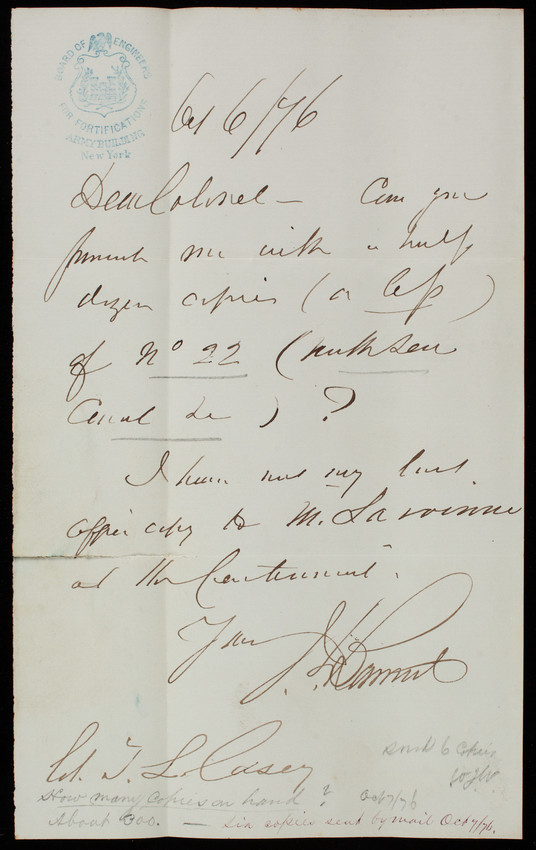 BOARD OF ENGINEERS
FOR FORTIFICATIONS
ARMY BUILDING
New York
Oct 6/76
Dear Colonel — Can you
furnish me with a half
dozen copies (or less)
of No 22 (North Sea
Canal &c) ?
I have my last
office copy to M. Lavoinne
at the Centennial.
Yours
Col. T. L. Casey
send 6 copies
How many copies on hand? Oct 7/76
About 600. — six copies sent by mail Oct 7/76.